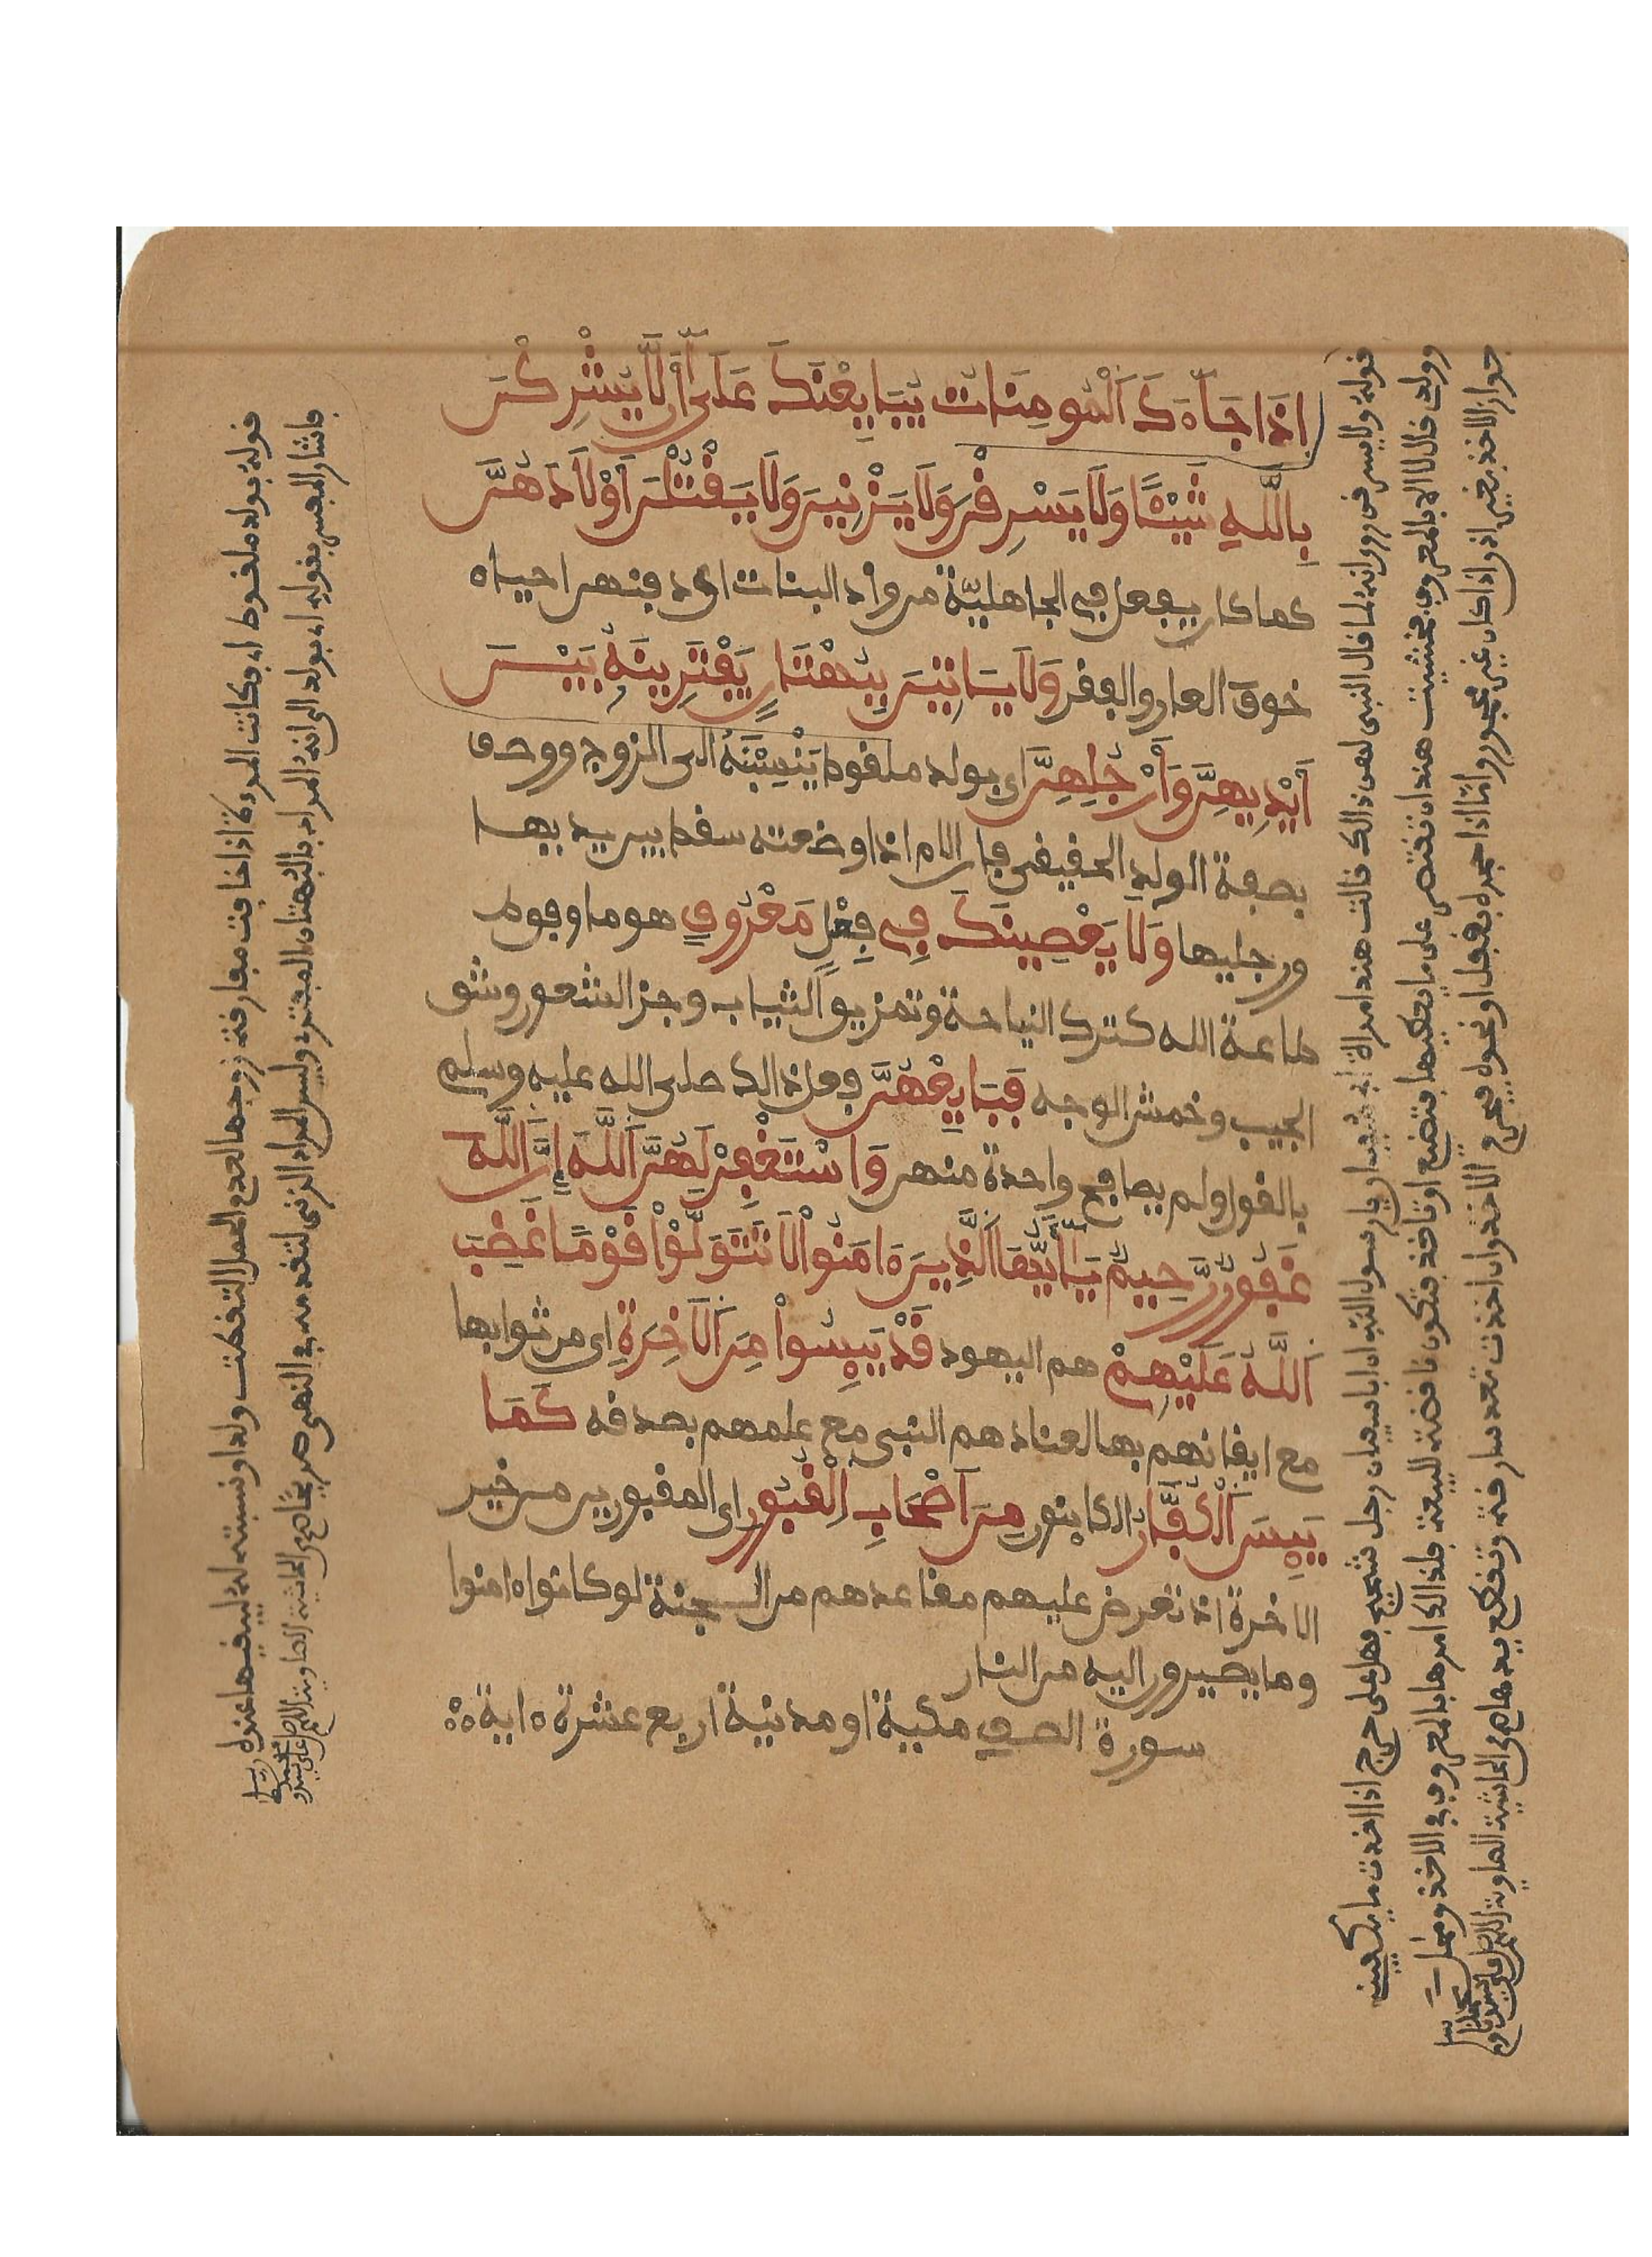 اذَا جَآءَكَ اَلْمُومِنَاتُ يُبَايِعْنَكَ عَلَىٰٓ أَن لَّا يُشْرِكْنَ
بِاللَّهِ شَيْـًٔا وَلَا يَسْرِقْنَ وَلَا يَزْنِينَ وَلَا يَقْتُلْنَ أَوْلَادَهُنَّ
كما كان يفعل في الجاهلية من وأد البنات اي دفنهن احياء
خوف العار والفقر وَلَا يَاتِينَ بِبُهْتَانٍ يَفْتَرِينَهُ بَيْنَ
أَيْدِيهِنَّ وَأَرْجُلِهِنَّ اي بولد ملقوط يَنْسِبْنَهُ الى الزوج ووصف
بصفة الولد الحقيقي فان الام اذا وضعته سقط بين يديها
ورجليها وَلَا يَعْصِينَكَ فِي فِعْلِ مَعْرُوفٍ هو ما وافق
طاعة الله كترك النياحة وتمزيق الثياب وجز الشعور وشق
الجيب وخمش الوجه فَبَايِعْهُنَّ فعل ذالك صلى الله عليه وسلم
بالقول ولم يصافح واحدة منهن وَاسْتَغْفِرْ لَهُنَّ اَللَّهَ إِنَّ اَللَّهَ
غَفُورٌ رَّحِيمٌ يَـٰٓأَيُّهَا اَلَّذِينَ ءَامَنُوا لَا تَتَوَلَّوْا قَوْمًا غَضِبَ
اَللَّهُ عَلَيْهِمْ هم اليهود قَدْ يَئِسُوا مِنَ اَلَاخِرَةِ اي من ثوابها
مع ايقانهم بها لعنادهم النبي مع علمهم بصدقه كَمَا
يَئِسَ اَلْكُفَّارُ الكائنون مِنَ أَصْحَابِ اِلْقُبُورِ اي المقبورين من خير
الاخرة اذ تعرض عليهم مقاعدهم من الجنة لو كانوا ءامنوا
وما يصيرون اليه من النار
سورة الصف مكية او مدنية اربع عشرة ءاية
قوله ولا يسرقن روي انه لما قال النبي لهن ذالك قالت هند امرأة ابي سفيان يا رسول الله ان ابا سفيان رجل شحيح فهل علي حرج اذا اخذت ما يكفيني
وولدي قال لا الا بالمعروف فخشيت هند ان تقتصر على ما يعطيها فتضيع او تاخذ فتكون ناقضة للبيعة فلذالك امرها بالمعروف في الاخذ ومحل
جواز الاخذ بغير اذن اذا كان غير محجور واما اذا حجره بقفل او نحوه فيحرم الاخذ وان اخذت تعد سارقة وتقطع يدها هـ من الحاشية الصاوية
قوله بولد ملقوط اي وكانت المرءة اذا خافت مفارقة زوجها لعدم الحمل التقطت ولدا ونسبته له ليبقيها عنده
فاشار المفسر بقوله اي بولد الى انه المراد بالبهتان المفترى وليس المراد الزنى لتقدمه في النهي صريحا هـ من الحاشية الصاوية